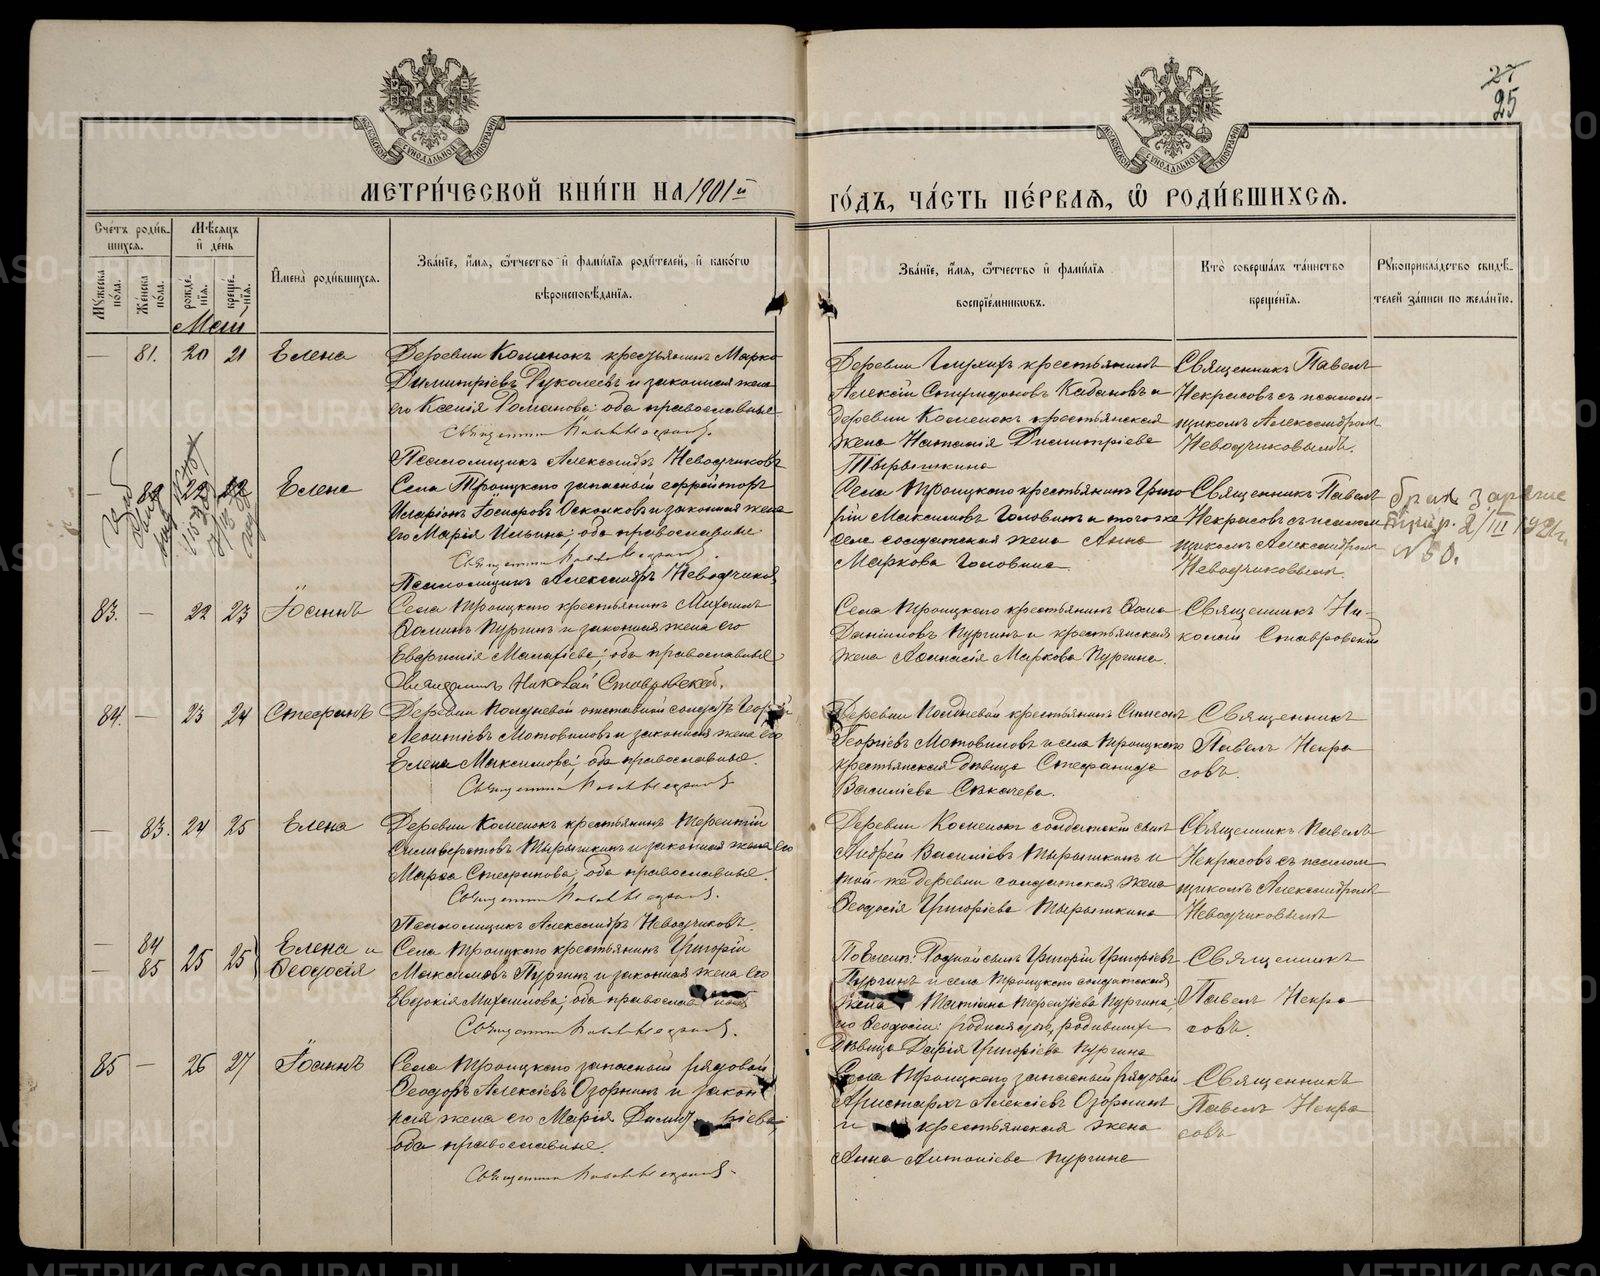 27
25
МОСКОВСКОЙ СѴНОДАЛЬНОЙ ТИПОГРАФІИ
МОСКОВСКОЙ СѴНОДАЛЬНОЙ ТИПОГРАФІИ
МЕТРИ́ЧЕСКОЙ КНИ́ГИ НА 1901й
ГО́ДЪ, ЧА́СТЬ ПЕ́РВАЯ, Ѽ РОДИ́ВШИХСЯ.
Сче́тъ роди́вшихся.
Му́жеска по́ла.
Же́нска по́ла.
Мѣ́сяцъ и҆ де́нь
рожде́нїя.
креще́нїя.
И҆мена̀ роди́вшихся.
Зва́нїе, и҆́мя, ѻ҆́тчество и҆ фами́лїя роди́телей, и҆ како́гѡ
вѣроисповѣ́данїя.
Зва́нїе, и҆́мя, ѻ҆́тчество и҆ фами́лїя
воспрїе́мниковъ.
Кто̀ соверша́лъ та́инство
креще́нїя.
Рꙋкоприкла́дство свидѣ́телей за́писи по жела́нїю.
Май
— 81. 20 21 Елена
Деревни Коменокъ крестьянинъ Марко
Димитріевъ Руколеевъ и законная жена
его Ксенія Романова; оба православные
Священникъ Павелъ Некрасовъ.
Псаломщикъ Александръ Неводчиковъ
Деревни крестьянинъ
Алексій Спиридоновъ Кабановъ и
деревни Коменокъ крестьянская
жена Наталія Димитріева
Тырышкина
Священникъ Павелъ
Некрасовъ съ псаломщикомъ Александромъ
Неводчиковымъ.
— 82 22 22 Елена
Села Троицкого запасный ефрейторъ
Иларіонъ Іосифовъ Осколковъ и законная жена
его Марія Ильина; оба православные
Священникъ Павелъ Некрасовъ.
Псаломщикъ Александръ Неводчиковъ
Села Троицкого крестьянинъ Григорій
Максимовъ Головинъ и тогоже
села солдатская жена Анна
Маркова Головина.
Священникъ Павелъ
Некрасовъ съ псаломщикомъ Александромъ
Неводчиковымъ
брак
2/III 1921г.
№ 50.
83. — 22 23 Іоаннъ
Села Троицкого крестьянинъ Михаилъ
Ѳоминъ Пургинъ и законная жена его
Евгенія Малахіева; оба православные
Священникъ Николай Ставровский.
Села Троицкого крестьянинъ Ѳома
Даніиловъ Пургинъ и крестьянская
жена Аѳанасія Маркова Пургина.
Священникъ Николай Ставровский
84. — 23 24 Стефанъ
Деревни Полдневой отставной солдатъ Георгій
Леонтіевъ Мотовиловъ и законная жена его
Елена Максимова; оба православные.
Священникъ Павелъ Некрасовъ
Деревни Полдневой крестьянинъ Симеонъ
Георгіевъ Мотовиловъ и села Троицкого
крестьянская дѣвица Стефанида
Василіева Сѣкачева.
Священникъ
Павелъ Некрасовъ.
— 83. 24 25 Елена
Деревни Коменокъ крестьянинъ Терентій
Сильвестровъ Тырышкинъ и законная жена его
Марѳа Стефанова; оба православные.
Священникъ Павелъ Некрасовъ.
Псаломщикъ Александръ Неводчиковъ.
Деревни Коменокъ солдатский сынъ
Андрей Василіевъ Тырышкинъ и
той-же деревни солдатская жена
Ѳеодосія Григоріева Тырышкина
Священникъ Павелъ
Некрасовъ съ псаломщикомъ Александромъ
Неводчиковымъ
— 84
— 85
25 25 Елена и
Ѳеодосія
Села Троицкого крестьянинъ Григорій
Максимовъ Пургинъ и законная жена его
Евдокія Михаилова; оба православные
Священникъ Павелъ Некрасовъ.
По Еленѣ: Родной сынъ Григорій Григоріевъ
Пургинъ и села Троицкого солдатская
жена Татіана Терентіева Пургина;
по Ѳеодосіи: родная родившихся
дѣвица Дарія Григоріева Пургина
Священникъ
Павелъ Некрасовъ.
85 — 26 27 Іоаннъ
Села Троицкого запасный рядовой
Ѳеодоръ Алексіевъ Озорнинъ и законная жена его Марія Димитріева;
оба православные.
Священникъ Павелъ Некрасовъ.
Села Троицкого запасный рядовой
Аристархъ Алексіевъ Озорнинъ
и крестьянская жена
Анна Антоніева Пургина
Священникъ
Павелъ Некрасовъ
METRIKI.GASO-URAL.RU